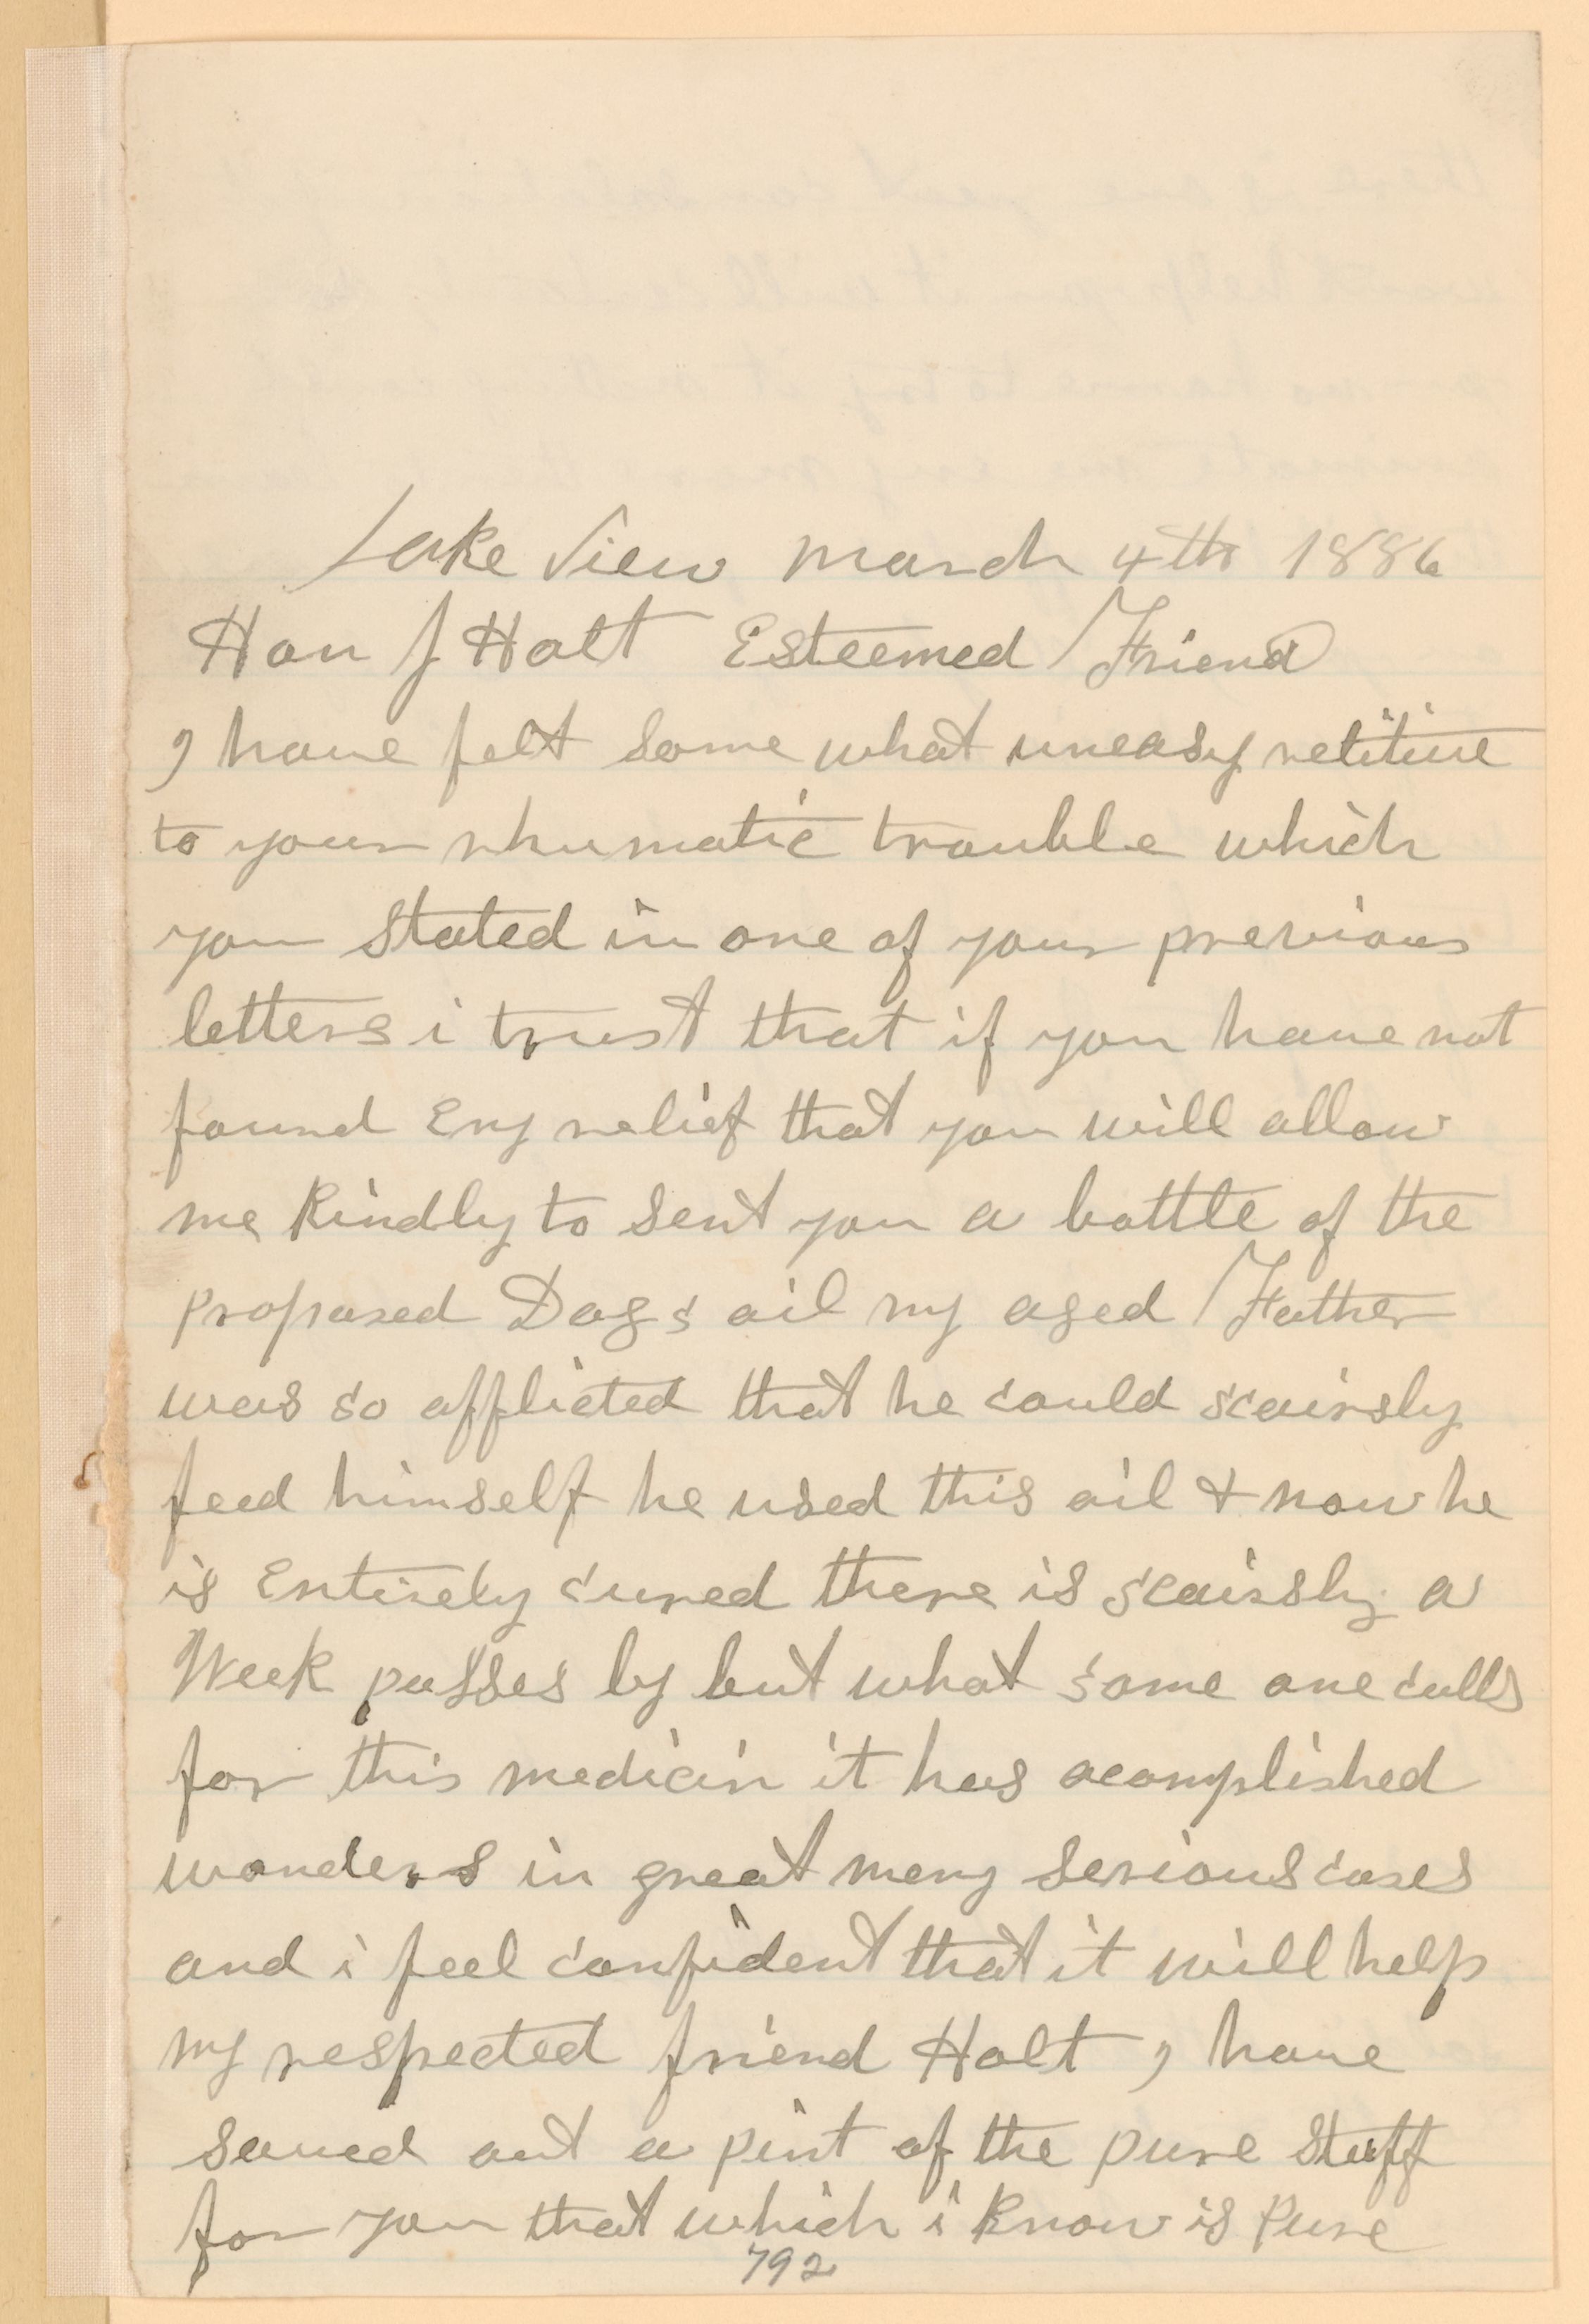 Lake View march 4th 1886
Hon J Holt Esteemed Friend
I have felt some what uneasy relitive
to your rhumatic trouble which
you stated in one of your previous
letters i trust that if you have not
found Eny relief that you will allow
me Kindly to sent you a bottle of the
proposed Dogs oil my aged Father
was so afflicted that he could scairsly
feed himself he used this oil & now he
is Entirely cured there is scairsly a
Week passes by but what some one calls
for this medicin it has acomplished
wonders in great meny serious cases
and i feel confident that it will help
my respected friend Holt I have
saved out a pint of the pure stuff
for you that which i Know is Pure
792